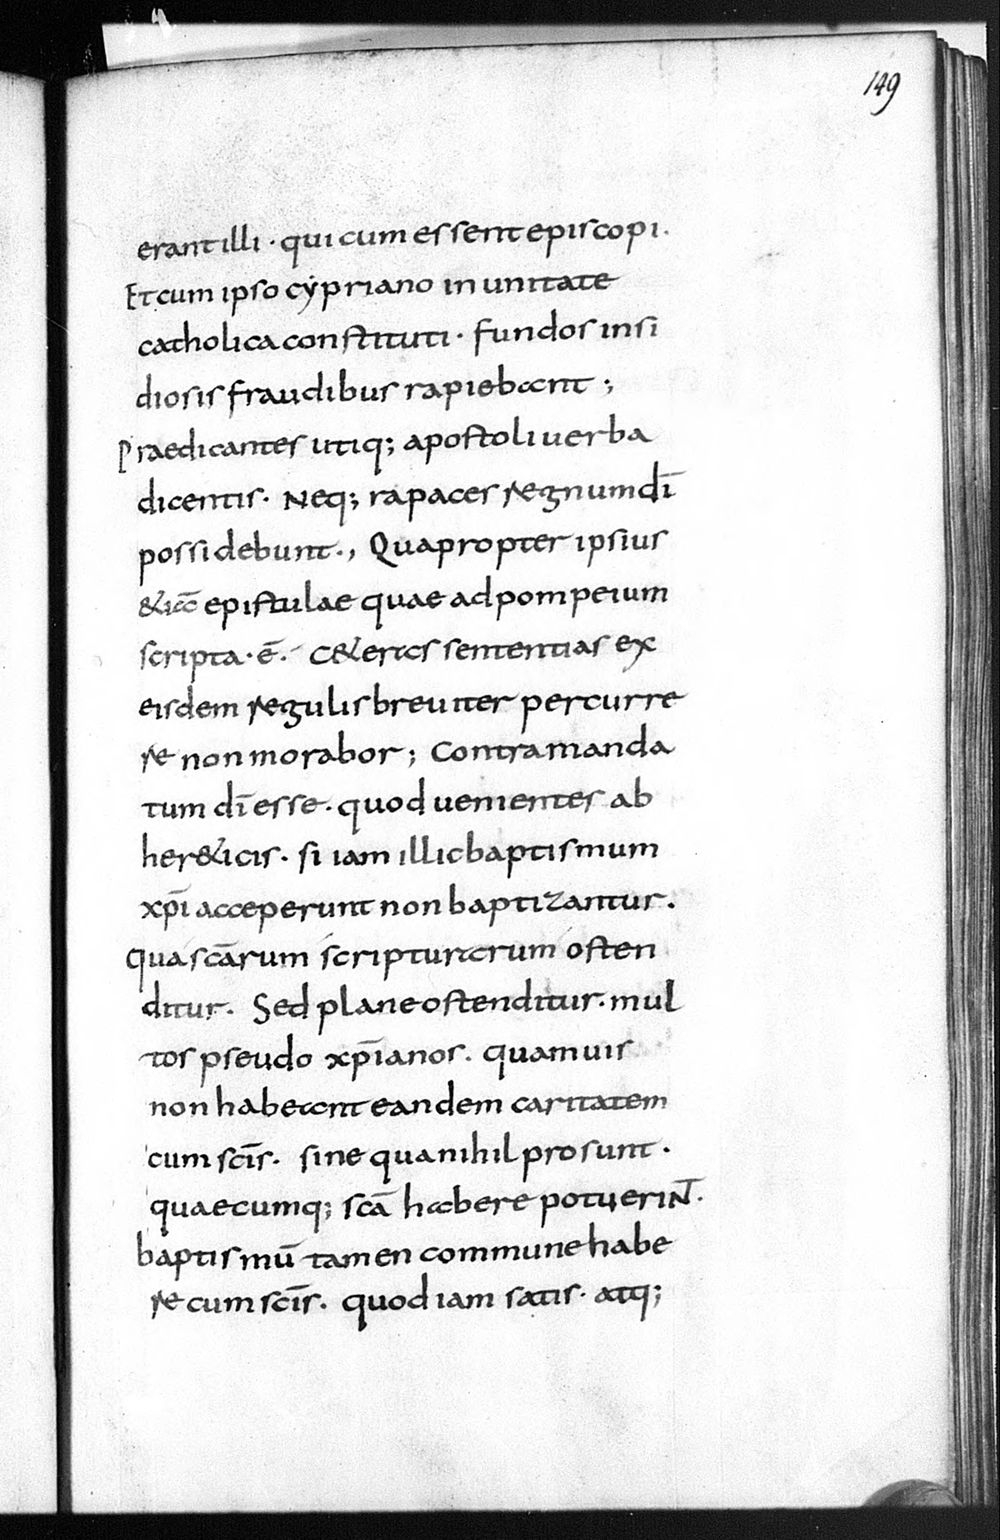 149
erant illi · qui cum essent episcopi.
Et cum ipso cẏpriano in unitate
catholica constituti · fundos insi
diosis fraudibus rapiebant ;
Praedicantes utiq; apostoli uerba
dicentis · Neq; rapaces regnum dī
possidebunt ., Quapropter ipsius
&iā epistulae quae ad pompeium
scripta · ē · C&eras sententias ex
eisdem regulis breuiter percurre
re non morabor ; Contra manda
tum dī esse · quod uenientes ab
her&icis · si iam illic baptismum
xp̄i acceperunt non baptizantur .
Qua scārum scripturarum osten
ditur . Sed plane ostenditur · mul
tos pseudo xp̄ianos . quamuis
non habeant eandem caritatem
cum scīs . sine qua nihil prosunt .
quaecumq; scā habere potuerin̄t .
baptismū tamen commune habe
re cum scīs . quod iam satis · atq;